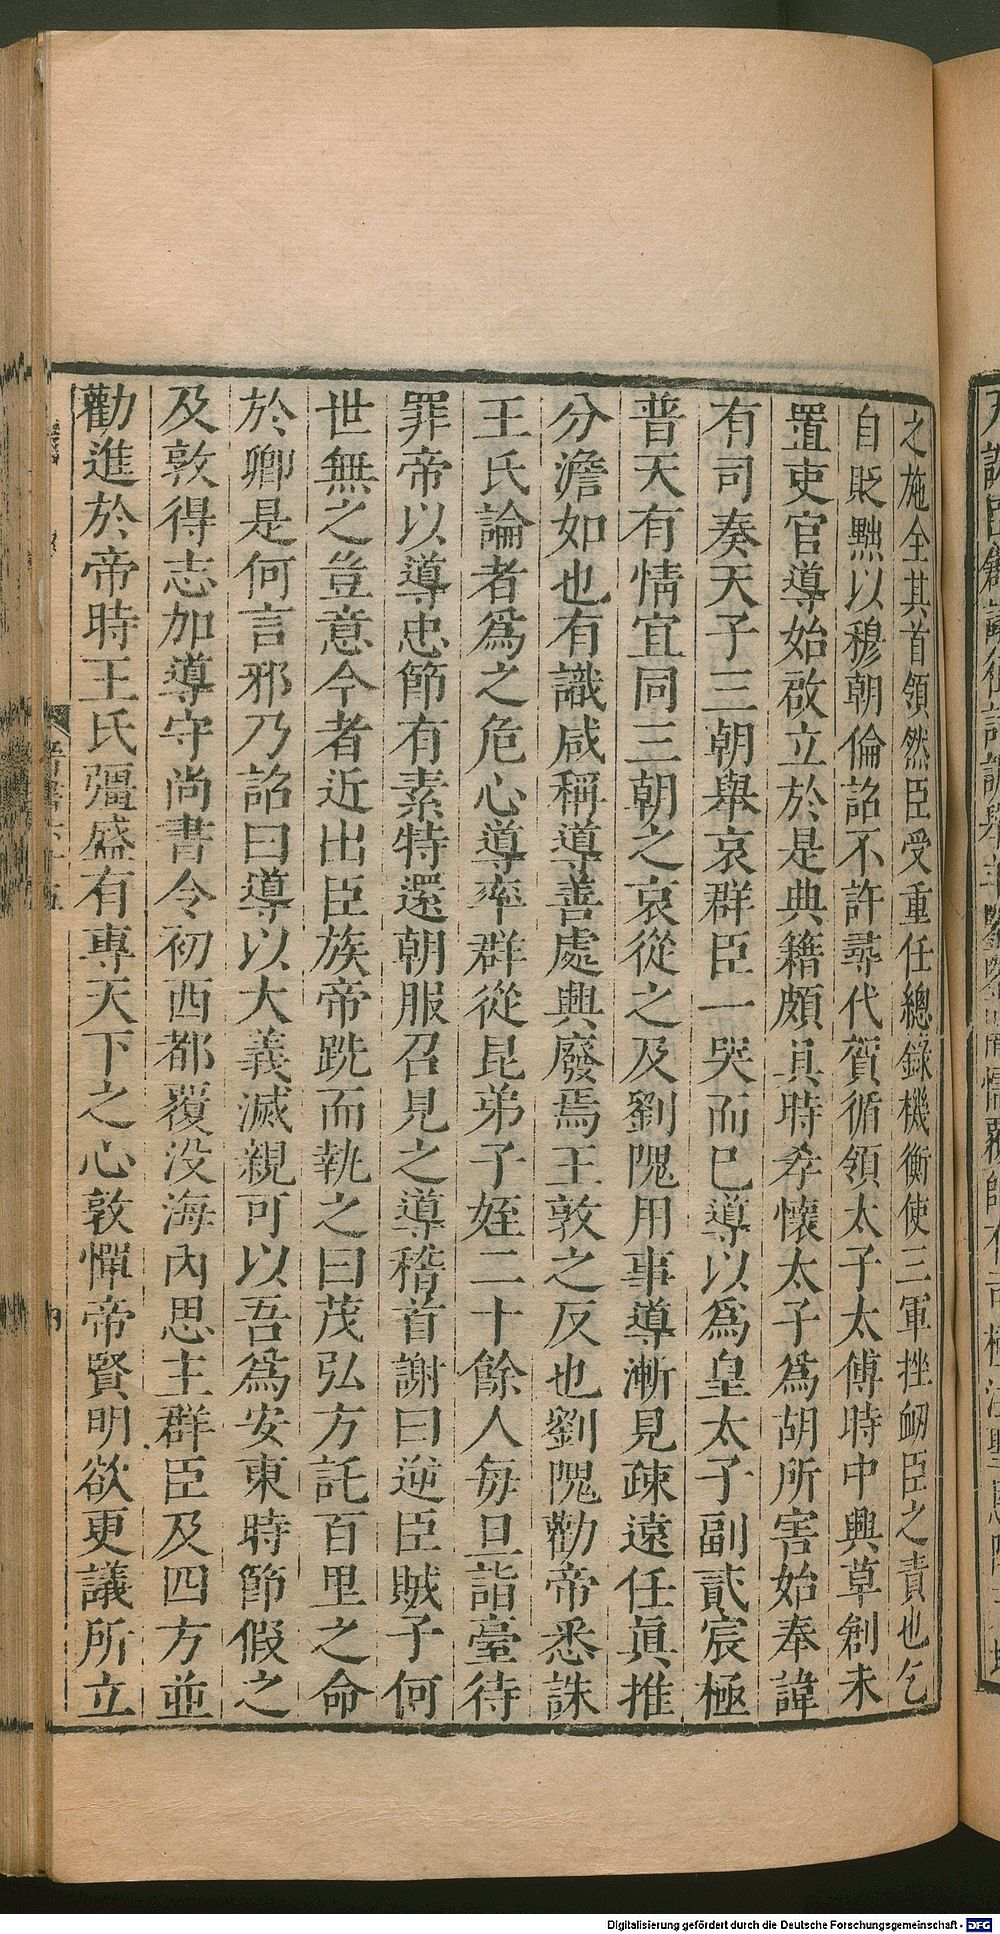 之施全其首領然臣受重任總錄機衡使三軍挫衂臣之責也乞
自貶黜以穆朝倫詔不許尋代賀循領太子太傅時中興草創未
置吏官導始啟立於是典籍頗具時孝懷太子為胡所害始奉諱
有司奏天子三朝舉哀群臣一哭而已導以為皇太子副貳宸極
普天有情宜同三朝之哀從之及劉隗用事導漸見疎遠任眞推
分澹如也有識咸稱導善處興廢焉王敦之反也劉隗勸帝悉誅
王氏論者爲之危心導率群從昆弟子姪二十餘人每旦詣臺待
罪帝以導忠節有素特還朝服召見之導稽首謝曰逆臣賊子何
世無之豈意今者近出臣族帝跣而執之曰茂弘方託百里之命
於卿是何言邪乃詔曰導以大義滅親可以吾爲安東時節假之
及敦得志加導守尚書令初西都覆沒海內思主群臣及四方並
勸進於帝時王氏彊盛有專天下之心敦憚帝賢明欲更議所立
Digitalisierung gefördert durch die Deutsche Forschungsgemeinschaft - DFG